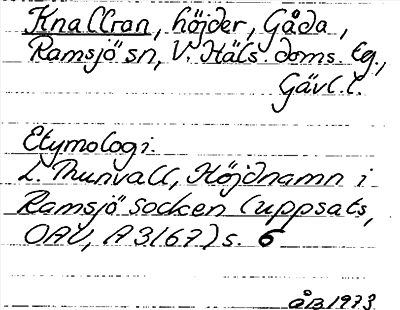 Knallran, höjder, Gåda,
Ramsjö sn, V. Häls. doms. tg.,
Gävl. l.
Etymologi.
L. Thunvall, Höjdnamn i
Ramsjö socken (uppsats,
OAU, A 3167) s. 6
ÅB 1973